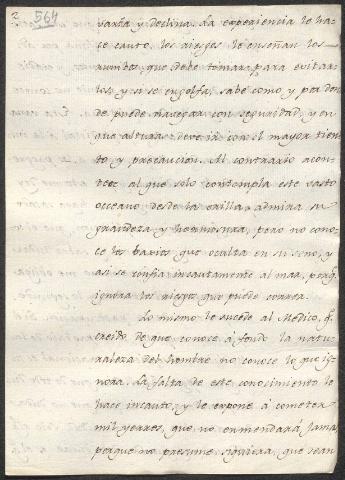 2 564
varía y declina. La experiencia le ha-
ce cauto, los riesgos le enseñan los
rumbos, que debe tomar para evitar-
los, y si se engolfa, sabe como, y por don-
de puede navegar con seguridad, y en
que altura deve ir con el mayor tien-
to, y precaucion. Al contrario acon-
tece al que solo contempla este vasto
occeano desde la orilla, admira su
grandeza y hermosura, pero no cono-
ce los baxios que oculta en su seno, y
asi se confia incautamente al mar, porq.
ignora los riesgos que puede correr.
Lo mismo le sucede al Medico, q.
creido, de que conoce á fondo la natu-
raleza del hombre no conoce lo que ig-
nora. La falta de este conocimiento le
hace incauto, y le expone á cometer
mil yerros, que no enmendará jamas
porque no presume siquiera, que sean